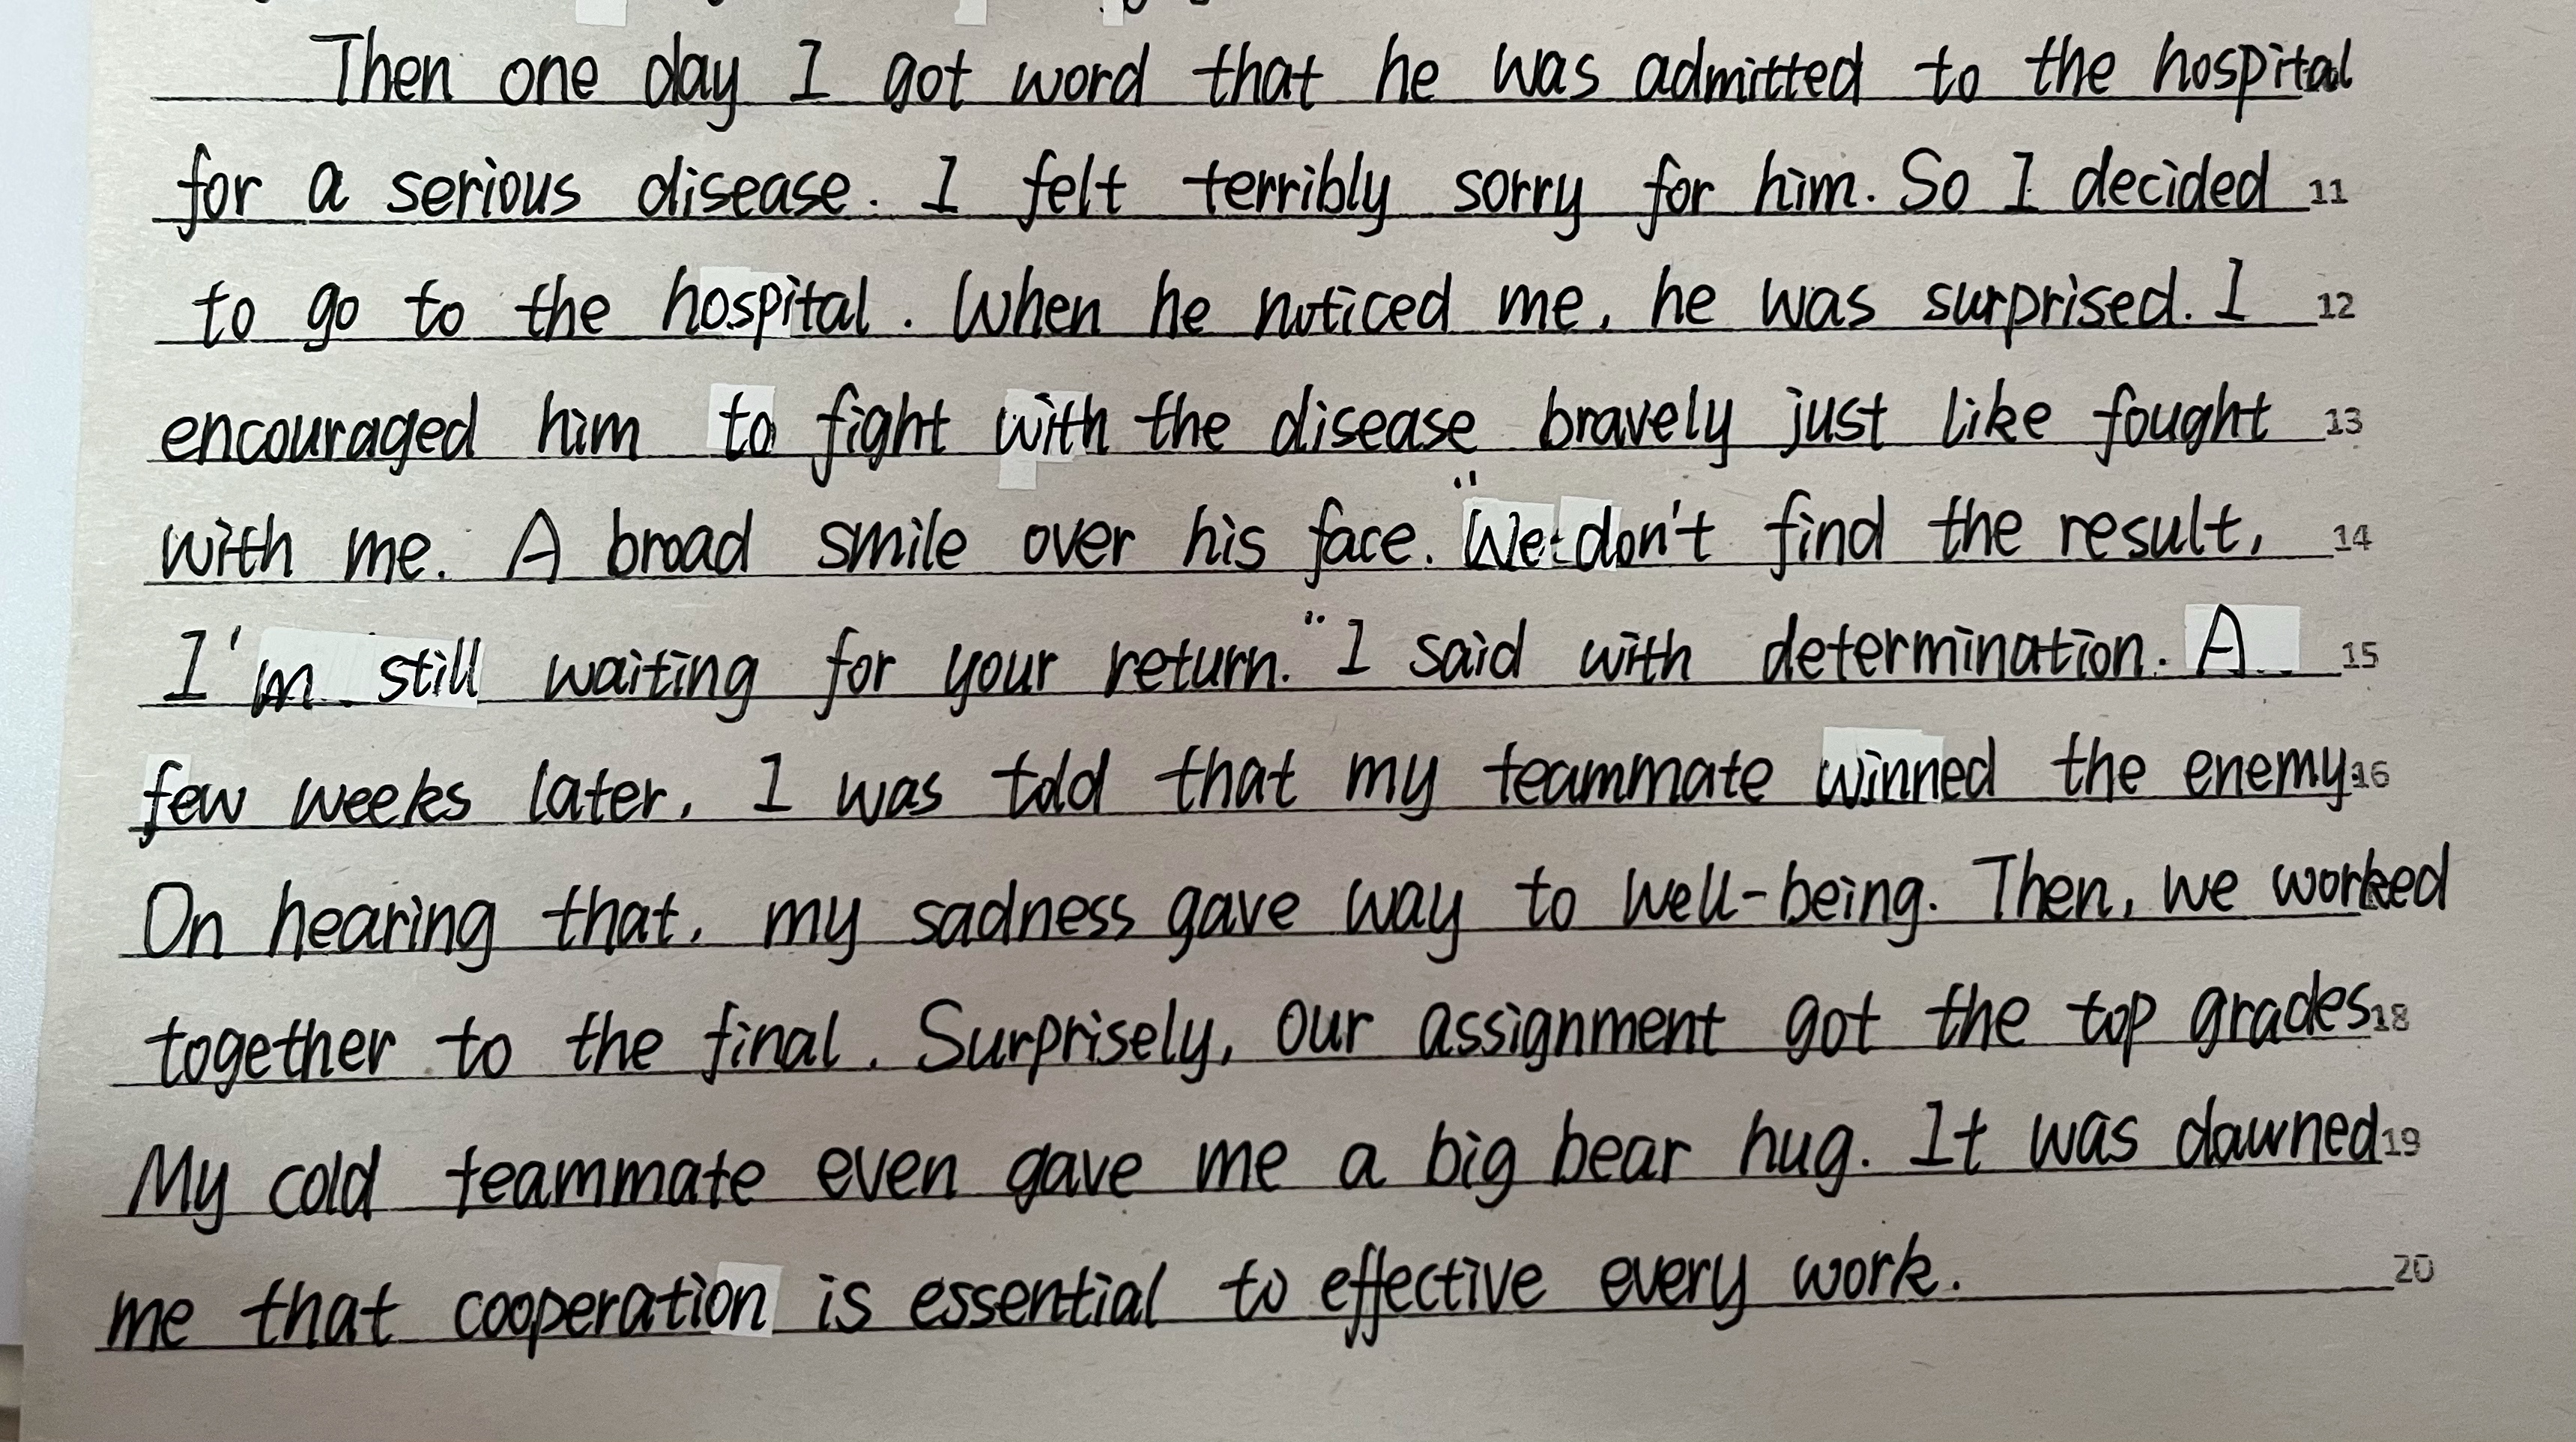 Then one day I got word that he was admitted to the hospital
for a serious disease. I felt terribly sorry for him. So I decided 11
to go to the hospital. When he noticed me, he was surprised. I 12
encouraged him to fight with the disease bravely just like fought 13
with me. A broad smile over his face. "We don't find the result, 14
I'm still waiting for your return." I said with determination. A 15
few weeks later, I was told that my teammate winned the enemy 16
On hearing that, my sadness gave way to well-being. Then, we worked
together to the final. Surprisely, our assignment got the top grades 18
My cold teammate even gave me a big bear hug. It was dawned 19
me that cooperation is essential to effective every work. 20